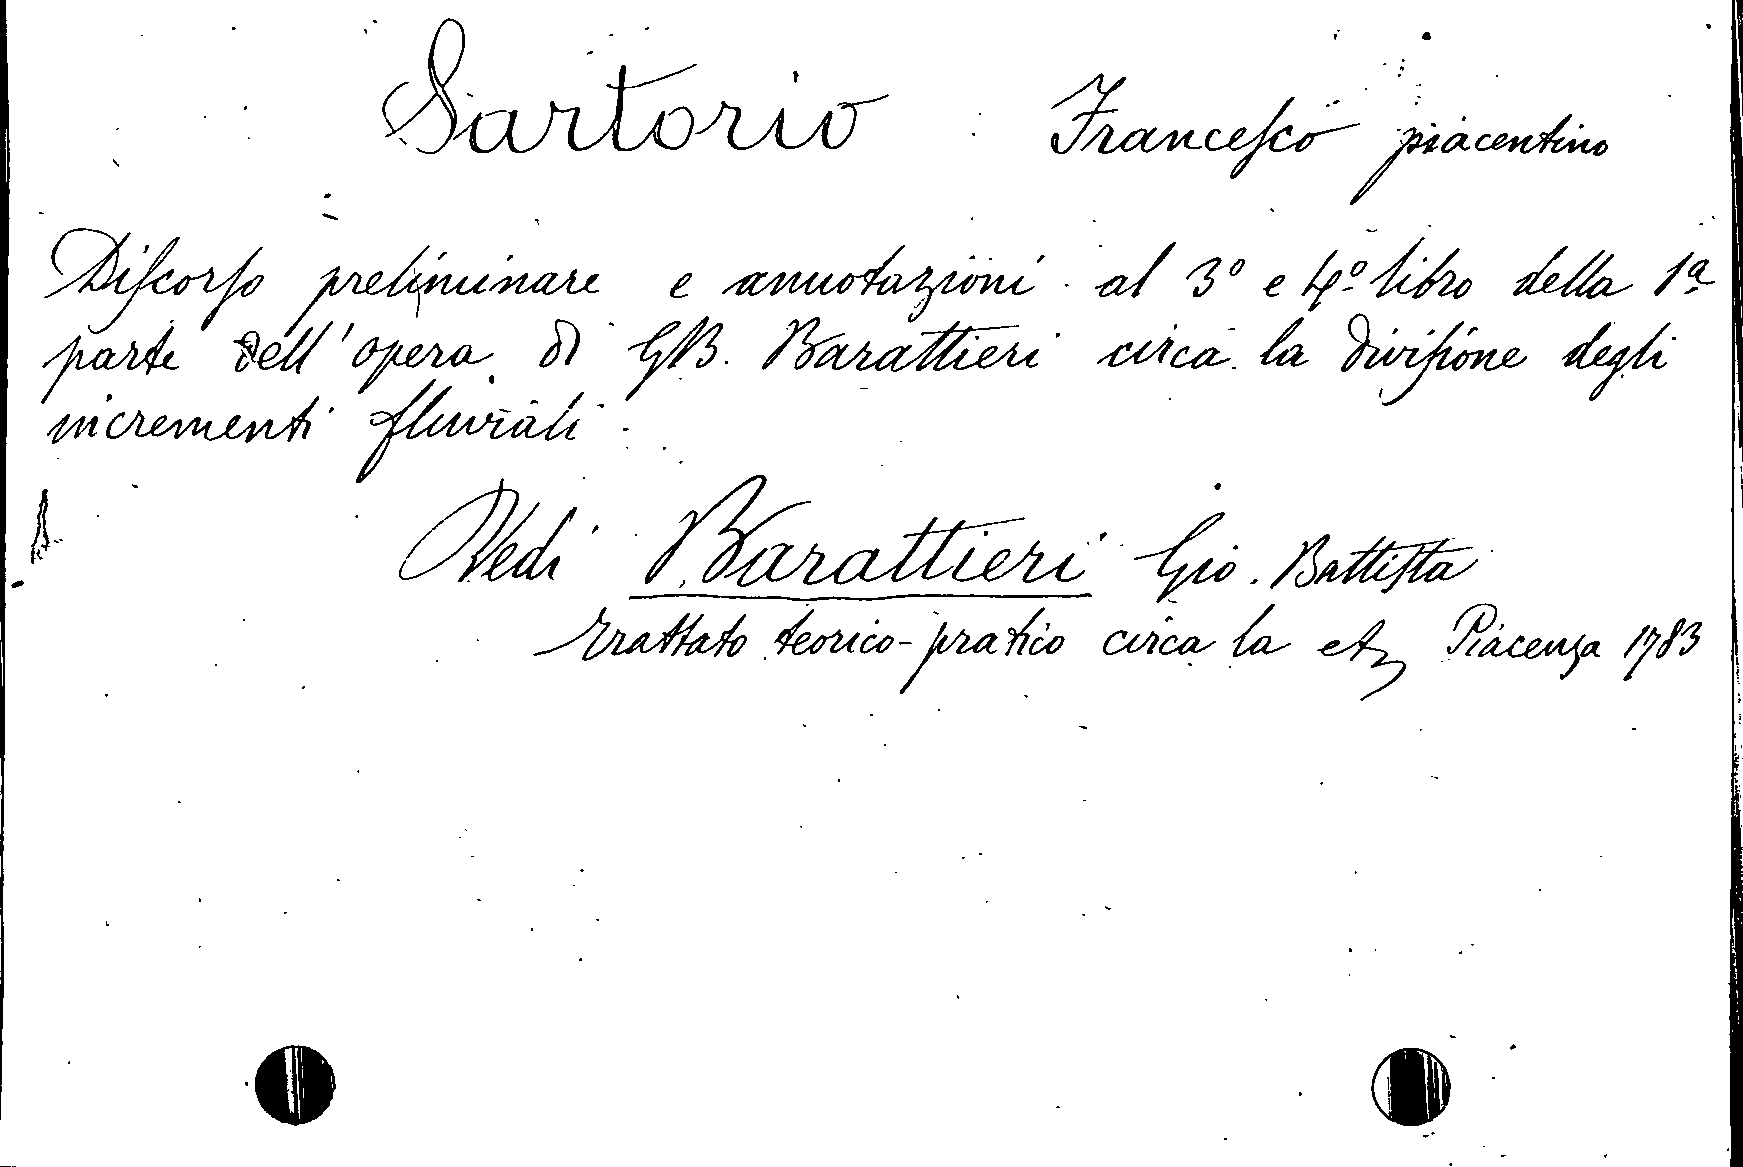 Sartorio Francesco piacentino
Discorso preliminare e annotazioni al 3º e 4º libro della 1ª
parte dell'opera di GB. Barattieri circa la divisione degli
incrementi fluviali
Vedi Barattieri Gio. Battista
trattato teorico-pratico circa la etc Piacenza 1783